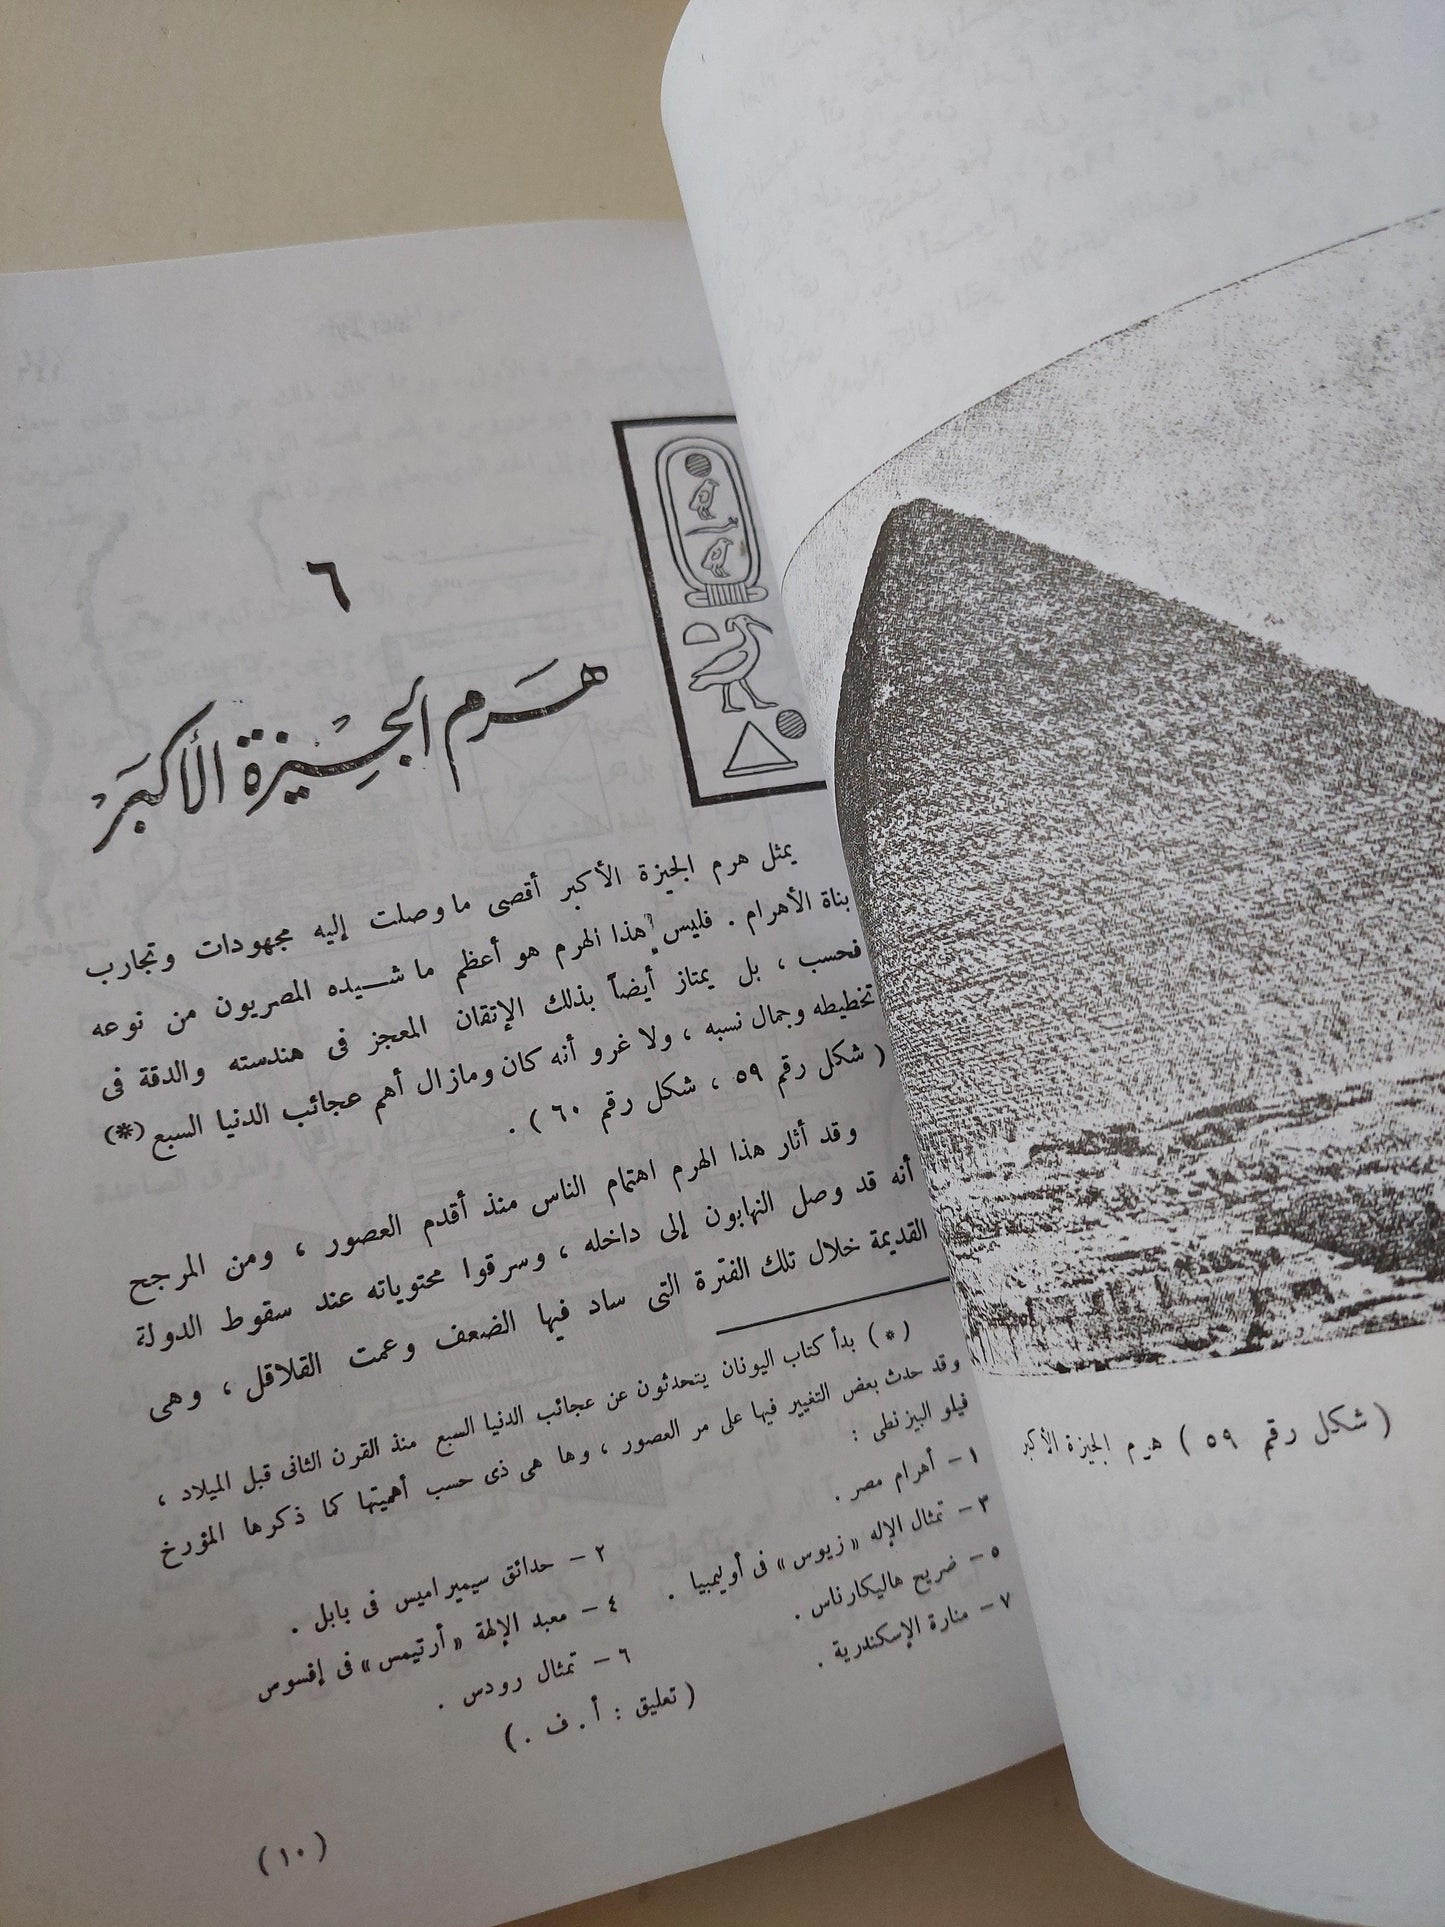 ٦
هرم الجيزة الأكبر
يمثل هرم الجيزة الأكبر أقصى ما وصلت إليه مجهودات وتجارب
بناة الأهرام . فليس هذا الهرم هو أعظم ما شـيده المصريون من نوعه
فحسب ، بل يمتاز أيضاً بذلك الإتقان المعجز فى هندسته والدقة فى
تخطيطه وجمال نسبه ، ولا غرو أنه كان ومازال أهم عجائب الدنيا السبع (*)
( شكل رقم ٥٩ ، شكل رقم ٦٠ ) .
وقد أثار هذا الهرم اهتمام الناس منذ أقدم العصور ، ومن المرجح
أنه قد وصل النهابون إلى داخله ، وسرقوا محتوياته عند سقوط الدولة
القديمة خلال تلك الفترة التى ساد فيها الضعف وعمت القلاقل ، وهى
( * ) بدأ كتاب اليونان يتحدثون عن عجائب الدنيا السبع منذ القرن الثانى قبل الميلاد ،
وقد حدث بعض التغيير فيها على مر العصور ، وها هى ذى حسب أهميتها كما ذكرها المؤرخ
فيلو البيزنطى :
١ – أهرام مصر .
٢ – حدائق سيميراميس فى بابل .
٣ – تمثال الإله « زيوس » فى أوليمبيا .
٤ – معبد الإلهة « أرتيمس » فى إفسوس
٥ – ضريح هاليكارناس .
٦ – تمثال رودس .
٧ – منارة الإسكندرية .
( تعليق : أ . ف . )
( ١٠ )
( شكل رقم ٥٩ ) هرم الجيزة الأكبر